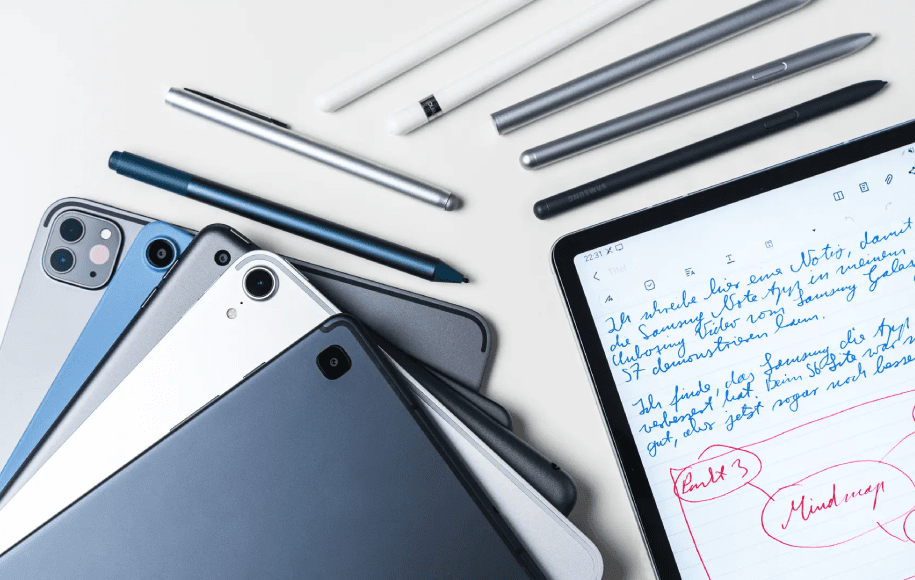 SAMSUNG
22:31
Titel
Ich schreibe hier eine Notiz, damit
die Samsung Note App in meinem
Unboxing Video vom Samsung Galax
S7 demonstrieren kann.
Ich finde, das Samsung die App
verbessert hat. Beim S6 Lite war
gut, aber jetzt sogar noch besse
Punkt 3
Mindmap